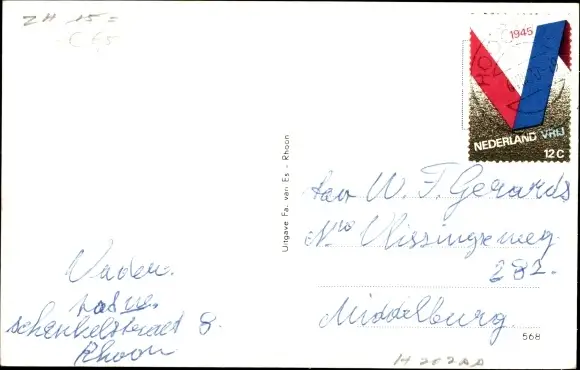 ZH 15=
1945
NEDERLAND VRIJ
12 C
Uitgave Fa. van Es - Rhoon
Fam W. F. Gerards
Nwe Vlissingseweg
282.
Middelburg.
568
Vader.
Schenkelstraat 8.
Rhoon